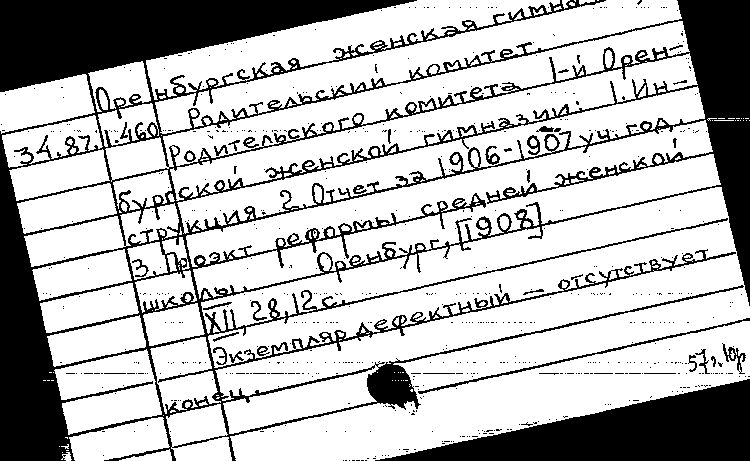 Оренбургская женская гимназия,
Родительский комитет.
34.87.1.460 Родительского комитета 1-й Орен-
бургской женской гимназии: 1. Ин-
струкция. 2. Отчет за 1906-1907 уч. год.
3. Проэкт реформы средней женской
школы. Оренбург, [1908].
XII, 28, 12 с.
Экземпляр дефектный — отсутствует
конец.
57г.